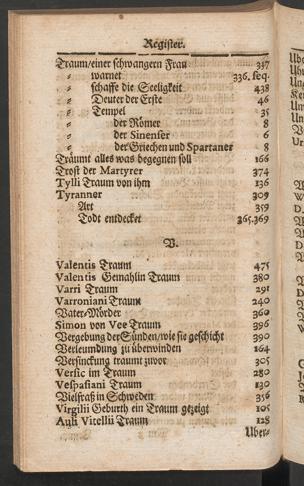 Register.
Traum/einer schwangern Frau 337
⸗ warnet 336. seq.
⸗ schaffe die Seeligkeit 438
⸗ Deuter der Erste 46
⸗ Tempel 35
der Römer 8
der Sinenser 6
der Griechen und Spartaner 8
Träumt alles was begegnen soll 166
Trost der Martyrer 374
Tylli Traum von ihm 136
Tyranner 309
Art 359
Todt entdecket 365.369
V.
Valentis Traum 475
Valentis Gemahlin Traum 380
Varri Traum 291
Varroniani Traum 240
Vater-Mörder 360
Simon von Vee Traum 396
Vergebung der Sünden/wie sie geschicht 390
Verleumdung zu überwinden 164
Versinckung träumt zuvor 305
Versic im Traum 280
Vespasiani Traum 130
Vielfraß in Schweden 356
Virgilii Geburth ein Traum gezeigt 105
Auli Vitellii Traum 128
Uber-